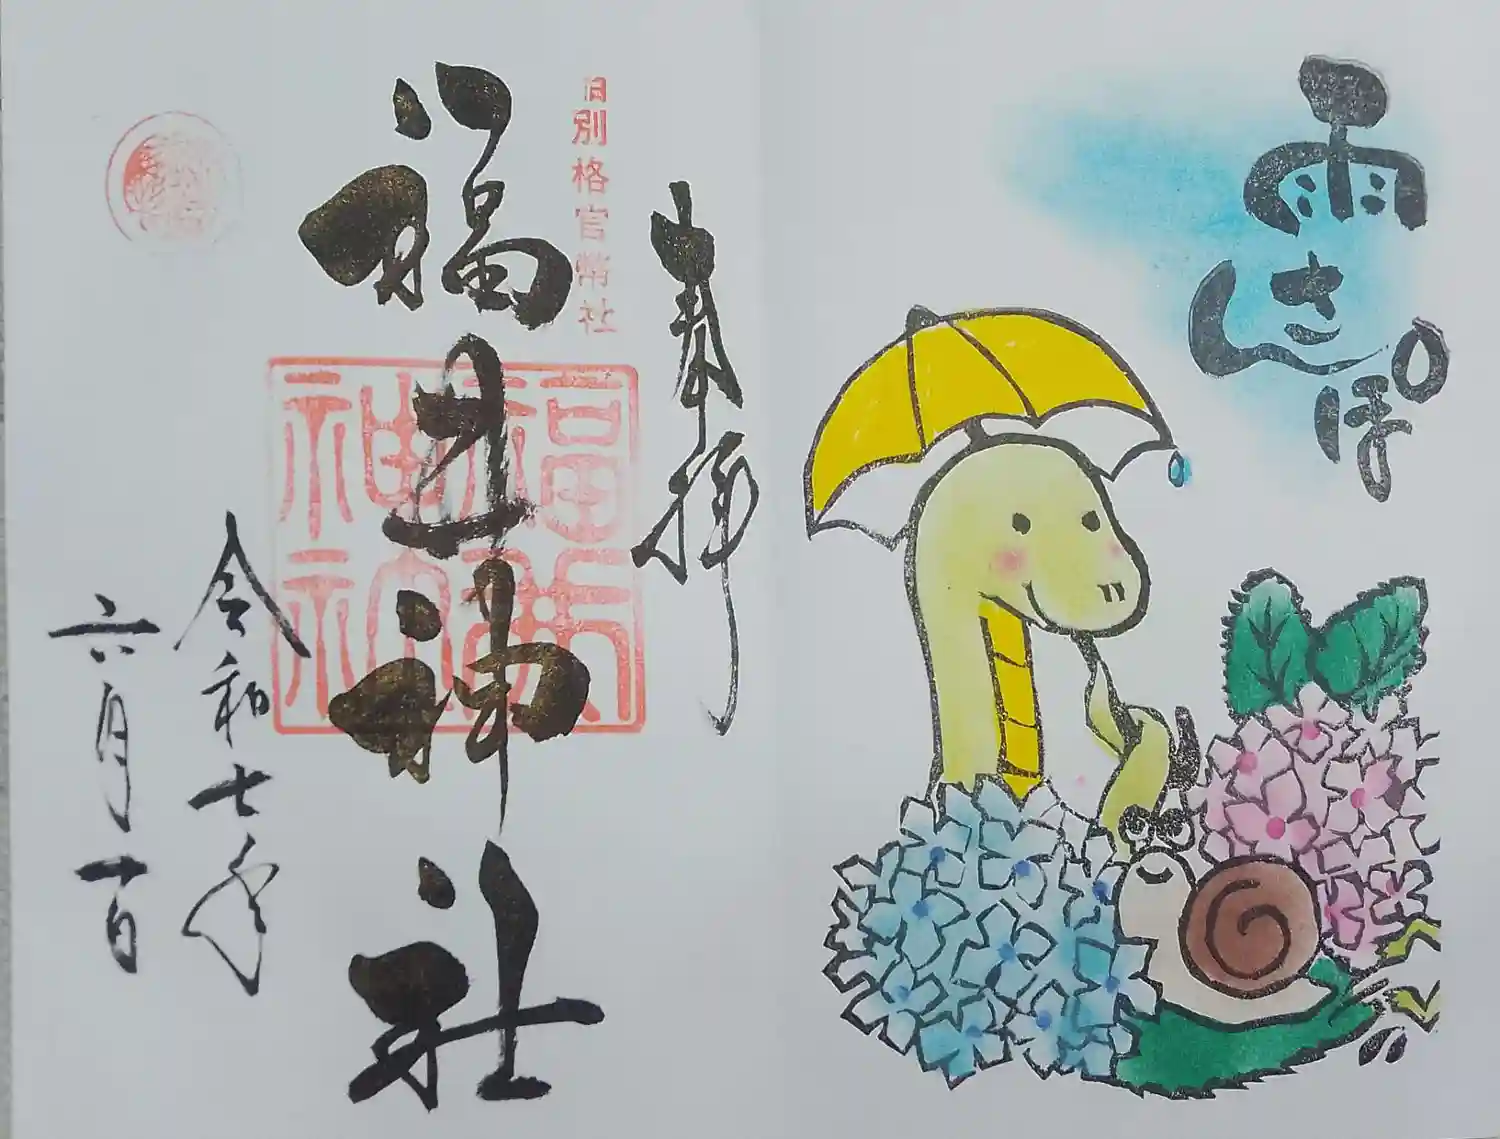 雨さんぽ
奉拝
旧別格官幣社
福井神社
令和七年
六月一日